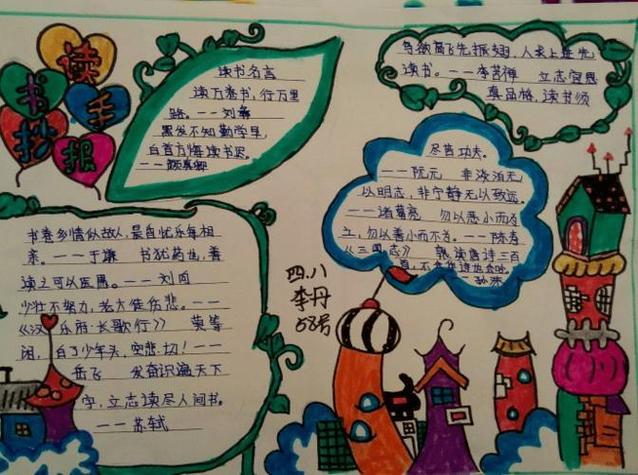 读
书
手
抄
报
读书名言
读万卷书,行万里
路。——刘彝
黑发不知勤学早,
白首方悔读书迟。
——颜真卿
鸟欲高飞先振翅,人求上进先
读书。——李苦禅 立志宜思
真品格,读书须
尽苦功夫。
——阮元 非淡泊无
以明志,非宁静无以致远。
——诸葛亮 勿以恶小而为
之,勿以善小而不为。——陈寿
《三国志》 熟读唐诗三百
首,不会作诗也会吟。
——孙洙
书卷多情似故人,晨昏忧乐每相
亲。——于谦 书犹药也,善
读之可以医愚。——刘向
少壮不努力,老大徒伤悲。——
《汉乐府·长歌行》 莫等
闲,白了少年头,空悲切!——
岳飞 发奋识遍天下
字,立志读尽人间书。
——苏轼
四.八
李丹
58号